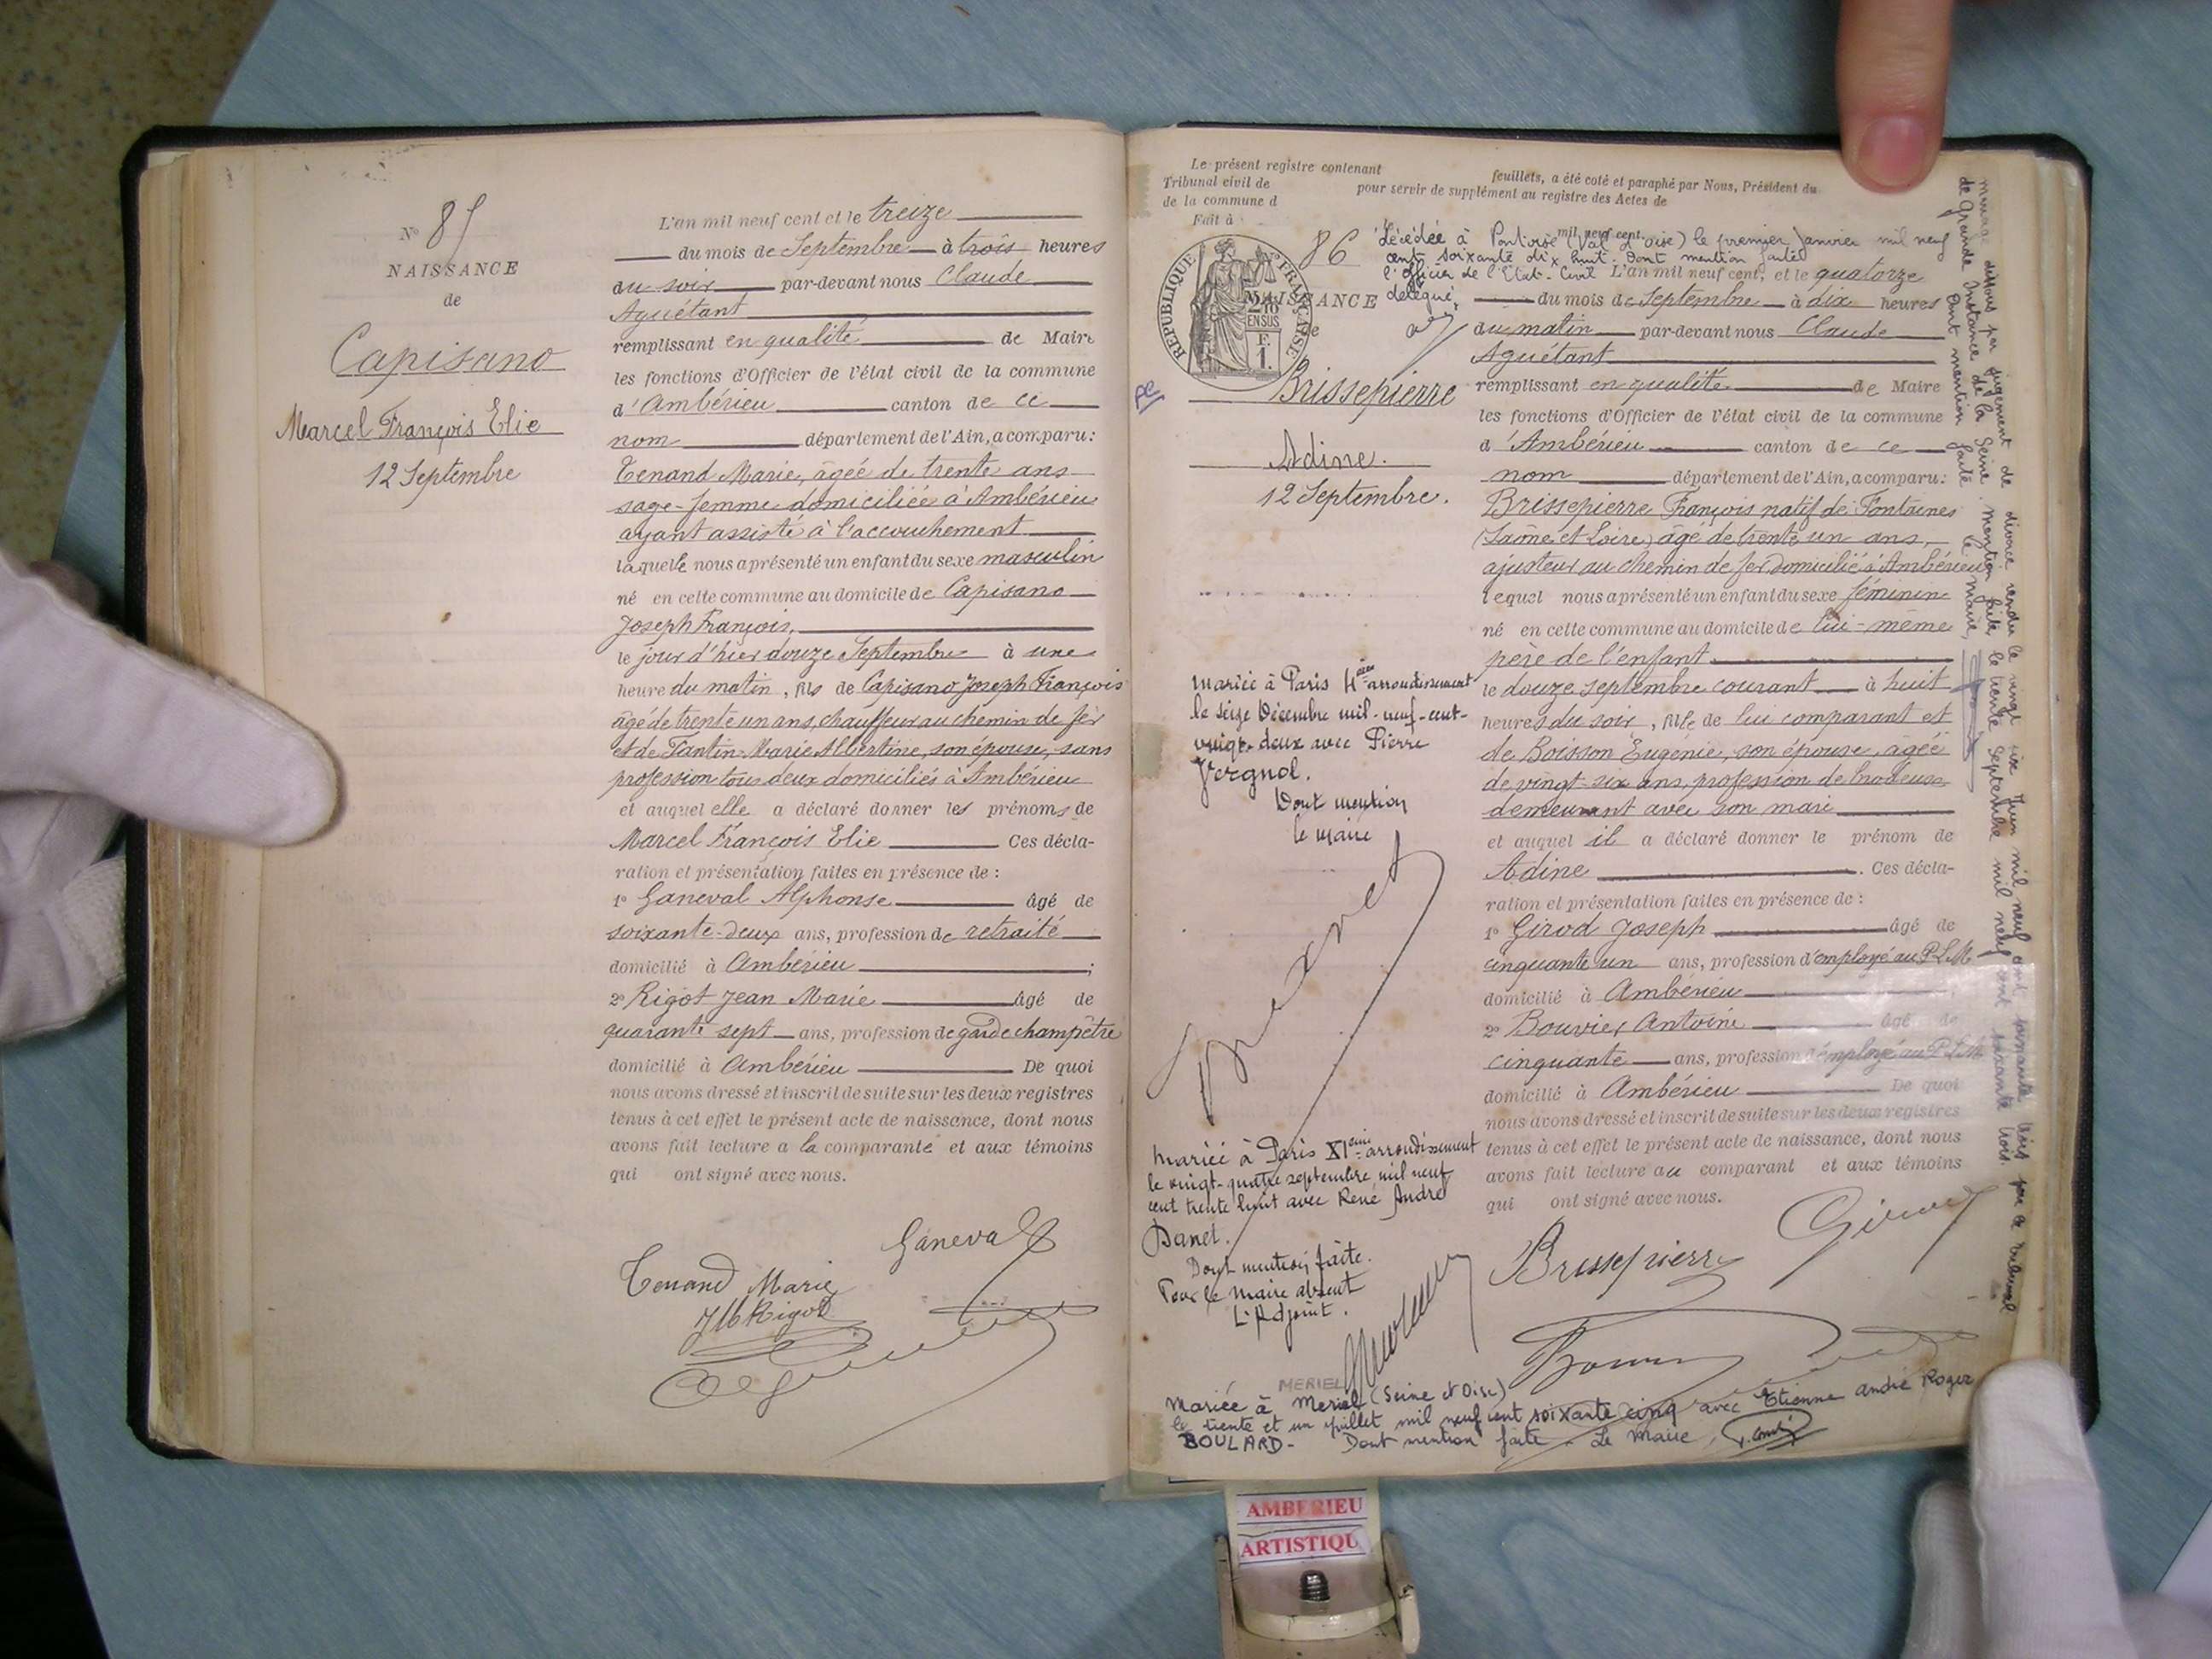 N° 85
NAISSANCE
de
Capisano
Marcel François Elie
12 Septembre
L'an mil neuf cent et le treize
du mois de Septembre à trois heures
du soir par-devant nous Claude
Aguétant
remplissant en qualité de Maire
les fonctions d'Officier de l'état civil de la commune
d'Ambérieu canton de ce
nom département de l'Ain, a comparu:
Tenand Marie, âgée de trente ans
sage-femme domiciliée à Ambérieu
ayant assisté à l'accouchement
laquelle nous a présenté un enfant du sexe masculin
né en cette commune au domicile de Capisano
Joseph François,
le jour d'hier douze Septembre à une
heure du matin, fils de Capisano Joseph François
âgé de trente un ans, chauffeur au chemin de fer
et de Tantin Marie Albertine, son épouse, sans
profession tous deux domiciliés à Ambérieu
et auquel elle a déclaré donner les prénoms de
Marcel François Elie Ces décla-
ration et présentation faites en présence de :
1° Ganeval Alphonse âgé de
soixante-deux ans, profession de retraité
domicilié à Ambérieu ;
2° Rigot Jean Marie âgé de
quarante sept ans, profession de garde champêtre
domicilié à Ambérieu De quoi
nous avons dressé et inscrit de suite sur les deux registres
tenus à cet effet le présent acte de naissance, dont nous
avons fait lecture a la comparante et aux témoins
qui ont signé avec nous.
Ganeval
Tenand Marie
JM Rigot
Le présent registre contenant feuillets, a été coté et paraphé par Nous, Président du
Tribunal civil de pour servir de supplément au registre des Actes de
de la commune d
Fait à
86
RÉPUBLIQUE FRANÇAISE
2/10 EN SUS
F.
1.
NAISSANCE
de
Brissepierre
Adine.
12 Septembre.
Décédée à Pontoise (Val d'Oise) le premier Janvier mil neuf
mil neuf cent
cent soixante dix huit. Dont mention faite
l'officier de l'Etat-Civil
délégué,
L'an mil neuf cent, et le quatorze
du mois de Septembre à dix heures
du matin par-devant nous Claude
Aguétant
remplissant en qualité de Maire
les fonctions d'Officier de l'état civil de la commune
d'Ambérieu canton de ce
nom département de l'Ain, a comparu:
Brissepierre François natif de Fontaines
(Saône et Loire) âgé de trente un ans,
ajusteur au chemin de fer domicilié à Ambérieu
lequel nous a présenté un enfant du sexe féminin
né en cette commune au domicile de lui-même
père de l'enfant
le douze septembre courant à huit
heures du soir, fille de lui comparant et
de Boisson Eugénie, son épouse, âgée
de vingt-six ans, profession de brodeuse
demeurant avec son mari
et auquel il a déclaré donner le prénom de
Adine. Ces décla-
ration et présentation faites en présence de :
1° Girod Joseph âgé de
cinquante un ans, profession d'employé au P.L.M.
domicilié à Ambérieu
2° Bouvier Antoine âgé de
cinquante ans, profession d'employé au P.L.M.
domicilié à Ambérieu De quoi
nous avons dressé et inscrit de suite sur les deux registres
tenus à cet effet le présent acte de naissance, dont nous
avons fait lecture au comparant et aux témoins
qui ont signé avec nous.
Brissepierre
Girod
mariée à Paris arrondissement
le seize Décembre mil-neuf-cent-
vingt-deux avec Pierre
Vergnol.
Dont mention
le maire
mariée à Paris XIème arrondissement
le vingt-quatre septembre mil neuf
cent trente huit avec René André
Danel.
Dont mention faite.
Pour le Maire absent
L'Adjoint.
MERIEL
Mariée à Meriel (Seine et Oise)
le trente et un juillet mil neuf cent soixante cinq avec Etienne André Roger
BOULARD- Dont mention faite - Le Maire,
mariage dissous par jugement de divorce rendu le vingt six Juin mil neuf cent soixante trois par le tribunal
de Grande Instance de la Seine. mention faite le trente septembre mil neuf cent soixante trois.
Dont mention faite
le Maire,
AMBERIEU
ARTISTIQU